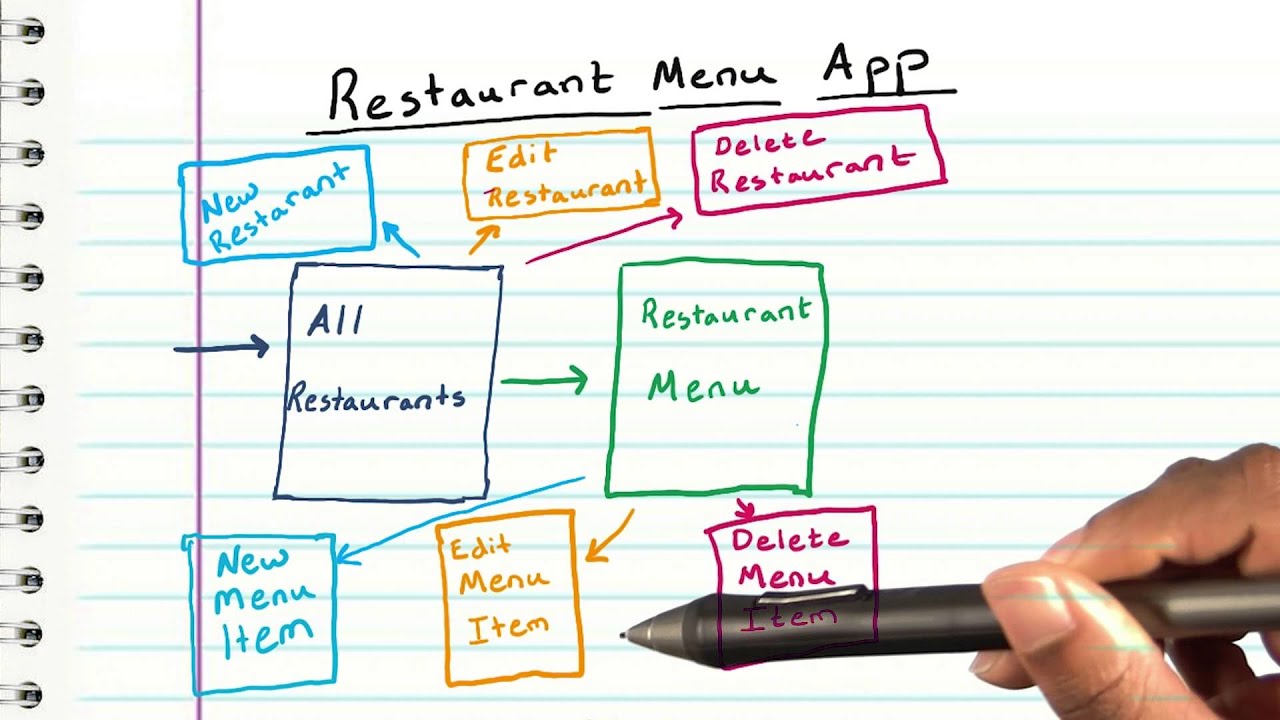 Restaurant Menu App
New
Restarant
Edit
Restaurant
Delete
Restaurant
All
Restaurants
Restaurant
Menu
New
Menu
Item
Edit
Menu
Item
Delete
Menu
Item